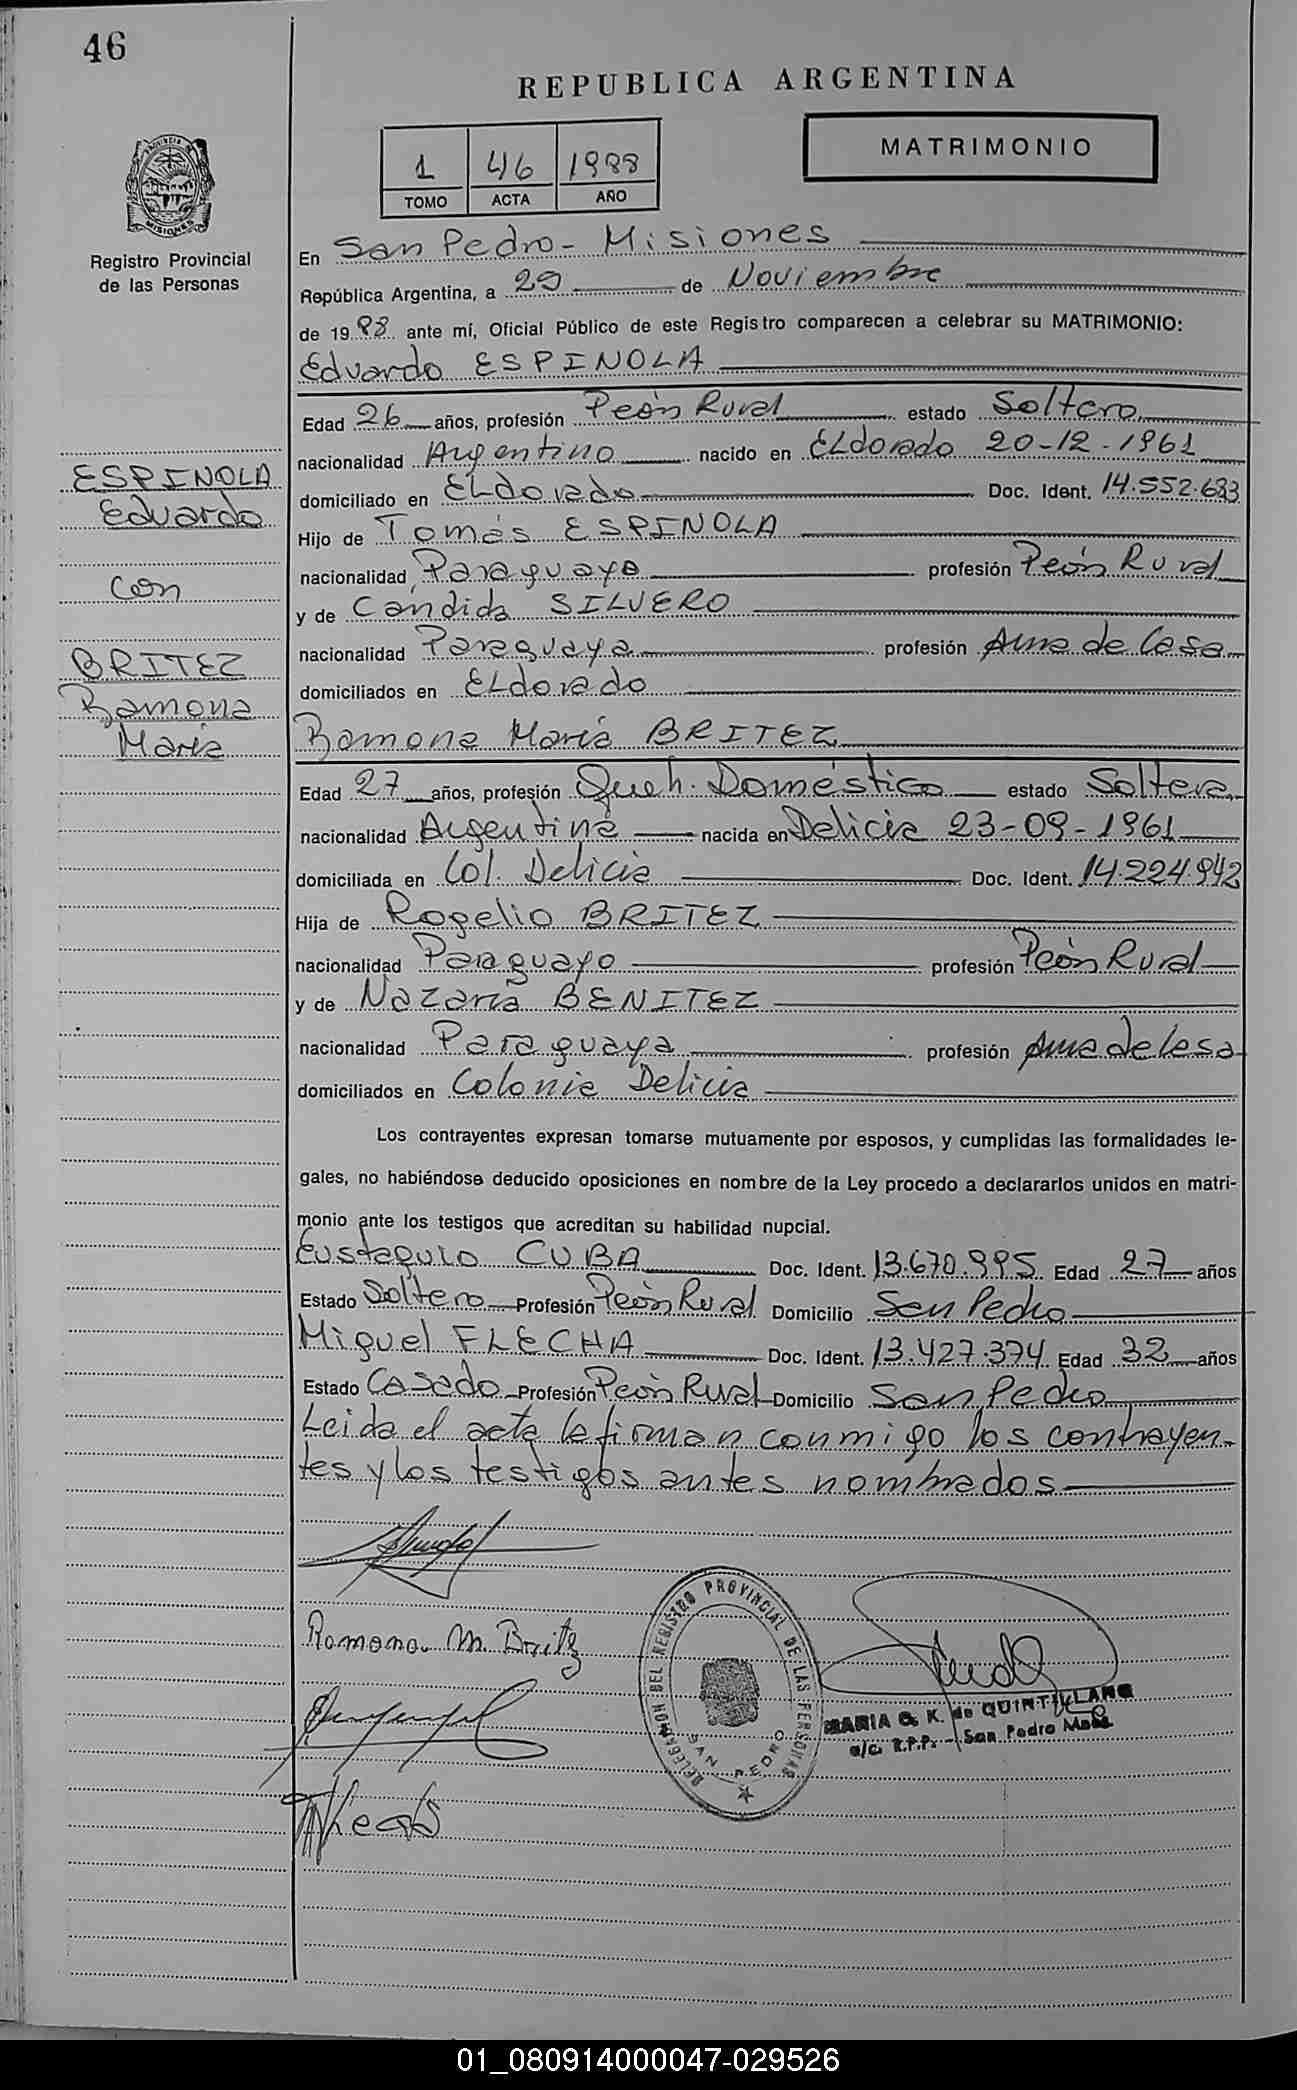 46
REPUBLICA ARGENTINA
MATRIMONIO
1 46 1988
TOMO ACTA AÑO
PROVINCIA DE MISIONES
Registro Provincial
de las Personas
En San Pedro - Misiones
República Argentina, a 29 de Noviembre
de 1988 ante mí, Oficial Público de este Registro comparecen a celebrar su MATRIMONIO:
Eduardo ESPINOLA
Edad 26 años, profesión Peón Rural estado Soltero
nacionalidad Argentino nacido en ELdorado 20-12-1961
domiciliado en ELdorado Doc. Ident. 14.552.683
Hijo de Tomás ESPINOLA
nacionalidad Paraguayo profesión Peón Rural
y de Cándida SILVERO
nacionalidad Paraguaya profesión Ama de Casa
domiciliados en ELdorado
ESPINOLA
Eduardo
con
BRITEZ
Ramona
María
Ramona María BRITEZ
Edad 27 años, profesión Queh. Doméstico estado Soltera
nacionalidad Argentina nacida en Delicia 23-09-1961
domiciliada en Col. Delicia Doc. Ident. 14.224.942
Hija de Rogelio BRITEZ
nacionalidad Paraguayo profesión Peón Rural
y de Nazaria BENITEZ
nacionalidad Paraguaya profesión Ama de Casa
domiciliados en Colonia Delicia
Los contrayentes expresan tomarse mutuamente por esposos, y cumplidas las formalidades le-
gales, no habiéndose deducido oposiciones en nombre de la Ley procedo a declararlos unidos en matri-
monio ante los testigos que acreditan su habilidad nupcial.
Eustaquio CUBA Doc. Ident. 13.670.995 Edad 27 años
Estado Soltero Profesión Peón Rural Domicilio San Pedro
Miguel FLECHA Doc. Ident. 13.427.374 Edad 32 años
Estado Casado Profesión Peón Rural Domicilio San Pedro
Leida el acta la firman conmigo los contrayen-
tes y los testigos antes nombrados
Ramona M. Britez
DELEGACION DEL REGISTRO PROVINCIAL DE LAS PERSONAS
SAN PEDRO
MARIA G. K. de QUINTILLANO
a/c. R.P.P. - San Pedro Mnes.
01_080914000047-029526